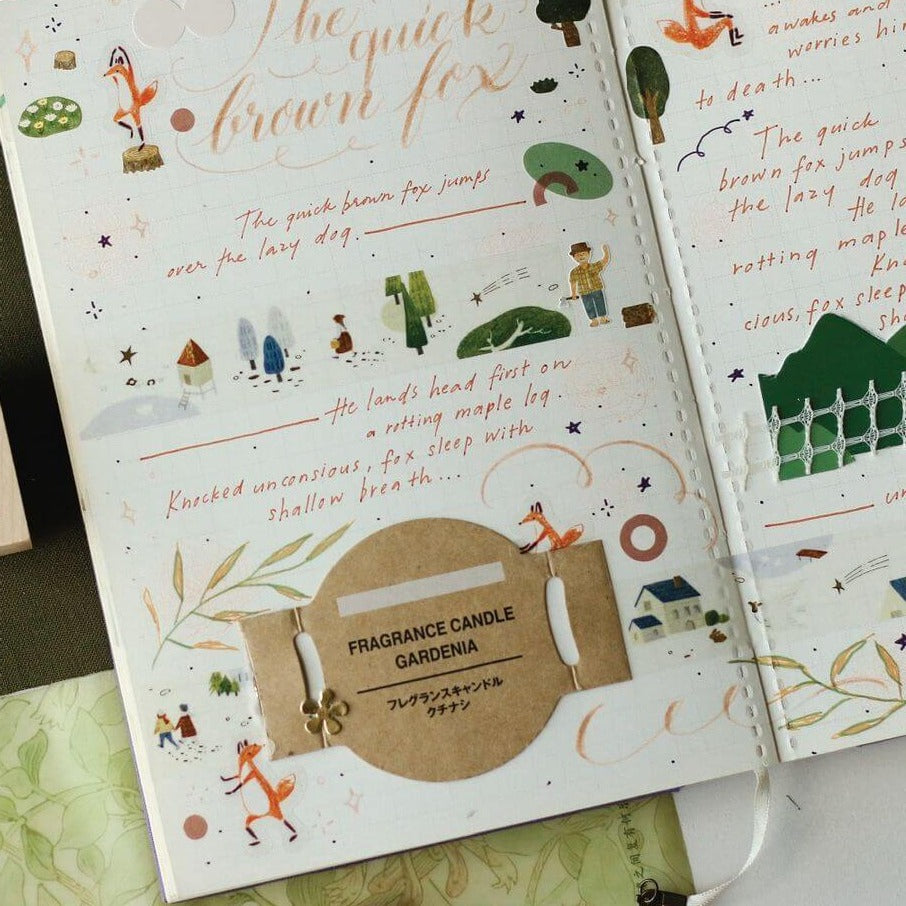 The quick
brown fox
The quick brown fox jumps
over the lazy dog.
He lands head first on
a rotting maple log.
Knocked unconsious, fox sleep with
shallow breath...
FRAGRANCE CANDLE
GARDENIA
フレグランスキャンドル
クチナシ
...
awakes and
worries hi
to death...
The quick
brown fox jumps
the lazy dog
He la
rotting maple
Kn
cious, fox sleep
sh
un